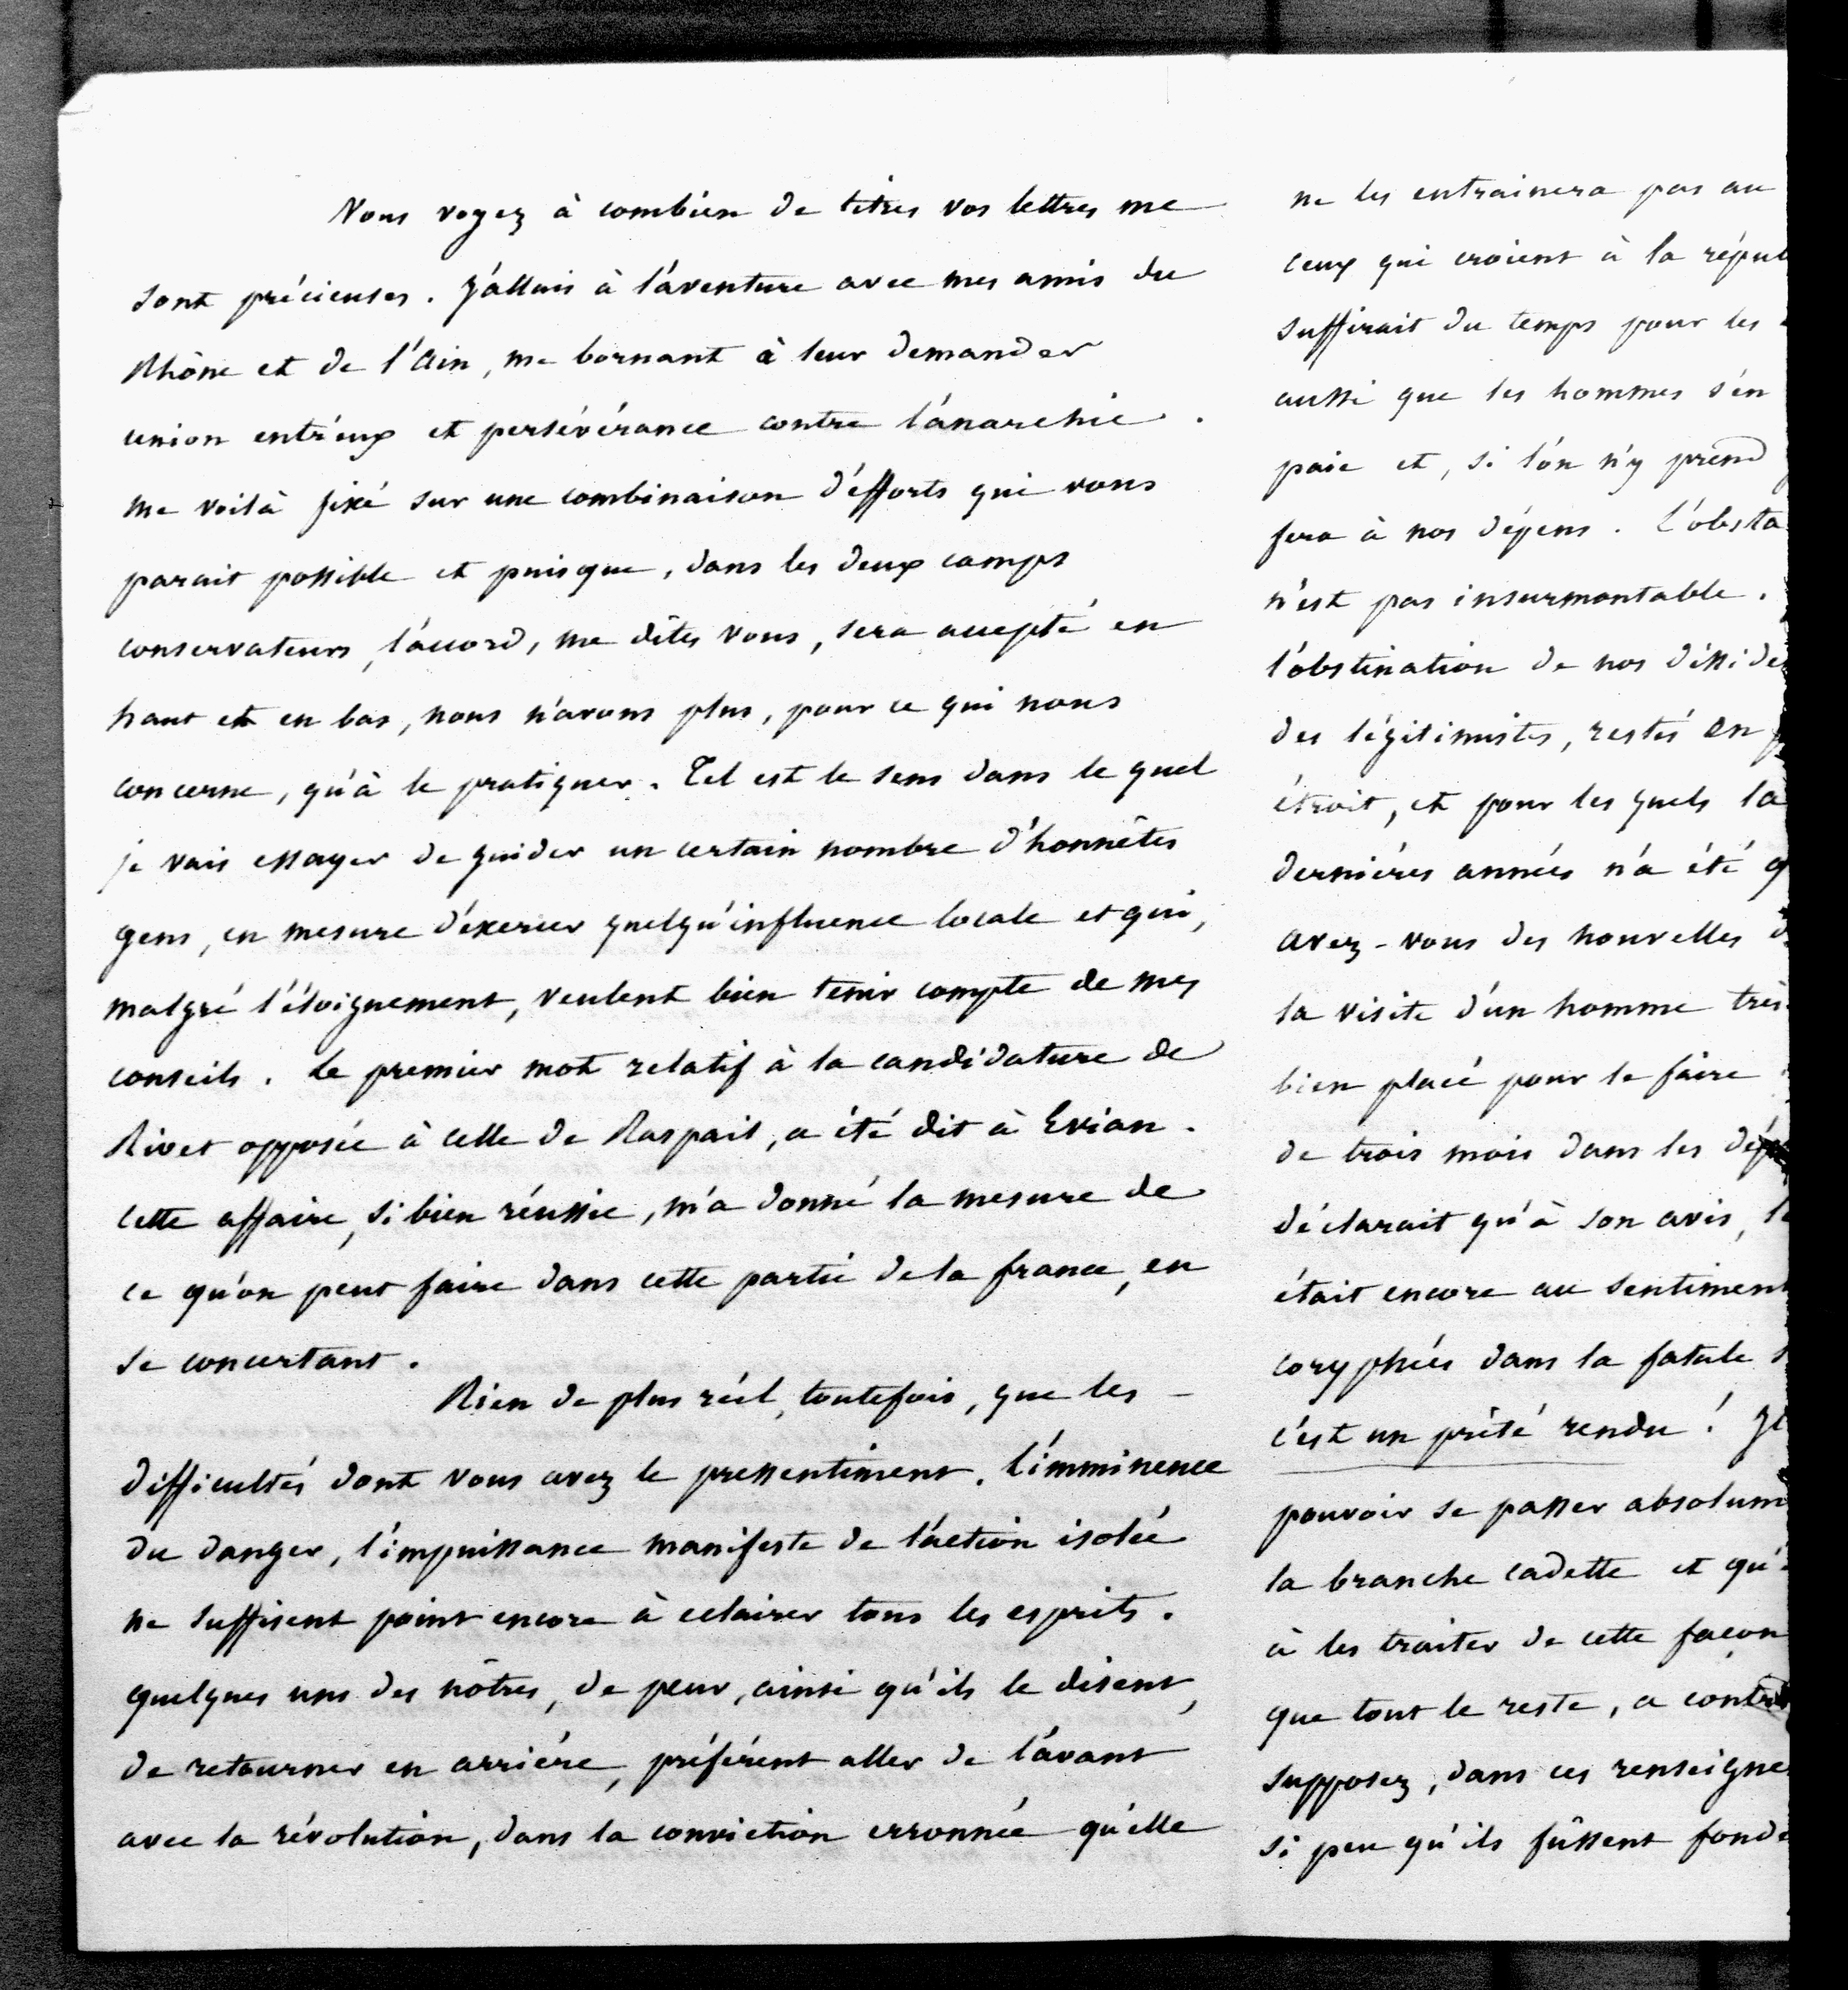 Vous voyez à combien de titres vos lettres me
sont précieuses. J'allais à l'aventure avec mes amis du
Rhône et de l'Ain, me bornant à leur demander
union entr'eux et persévérance contre l'anarchie.
me voilà fixé sur une combinaison d'éfforts qui vous
parait possible et puisque, dans les deux camps
conservateurs, l'accord, me dîtes vous, sera accepté en
haut et en bas, nous n'avons plus, pour ce qui nous
concerne, qu'à le pratiquer. Tel est le sens dans le quel
je vais essayer de guider un certain nombre d'honnêtes
gens, en mesure d'éxercer quelqu'influence locale et qui,
malgré l'éloignement, veulent bien tenir compte de mes
conseils. Le premier mot relatif à la candidature de
Rivet opposée à celle de Raspail, a été dit à Evian.
cette affaire, si bien réussie, m'a donné la mesure de
ce qu'on peut faire dans cette partie de la france, en
se concertant.
Rien de plus réel, toutefois, que les
difficultés dont vous avez le pressentiment. L'imminence
du danger, l'impuissance manifeste de l'action isolée
ne suffisent point encore à eclairer tous les esprits.
quelques uns des nôtres, de peur, ainsi qu'ils le disent,
de retourner en arriére, préférent aller de l'avant
avec la révolution, dans la conviction erronnée qu'elle
ne les entrainera pas au
ceux qui croient à la répub
suffirait du temps pour les
aussi que les hommes s'en
paie et, si l'on n'y prend
fera à nos dépens. L'obsta
n'est pas insurmontable.
l'obstination de nos disside
des légitimistes, restés en
étroit, et pour les quels la
derniéres années n'a été q
avez-vous des nouvelles d
la visite d'un homme très
bien placé pour le faire
de trois mois dans les dép
déclarait qu'à son avis, le
était encore au sentiment
coryphées dans la fatale
c'est un prêté rendu! Il
pouvoir se passer absolum
la branche cadette et qu'
à les traiter de cette façon
que tout le reste, a contri
supposez, dans ces renseigne
si peu qu'ils fûssent fondé